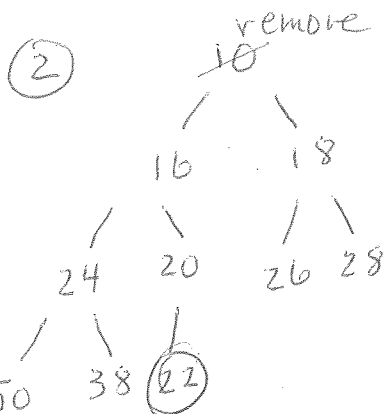 remove
2
10
16 18
24 20 26 28
50 38 22